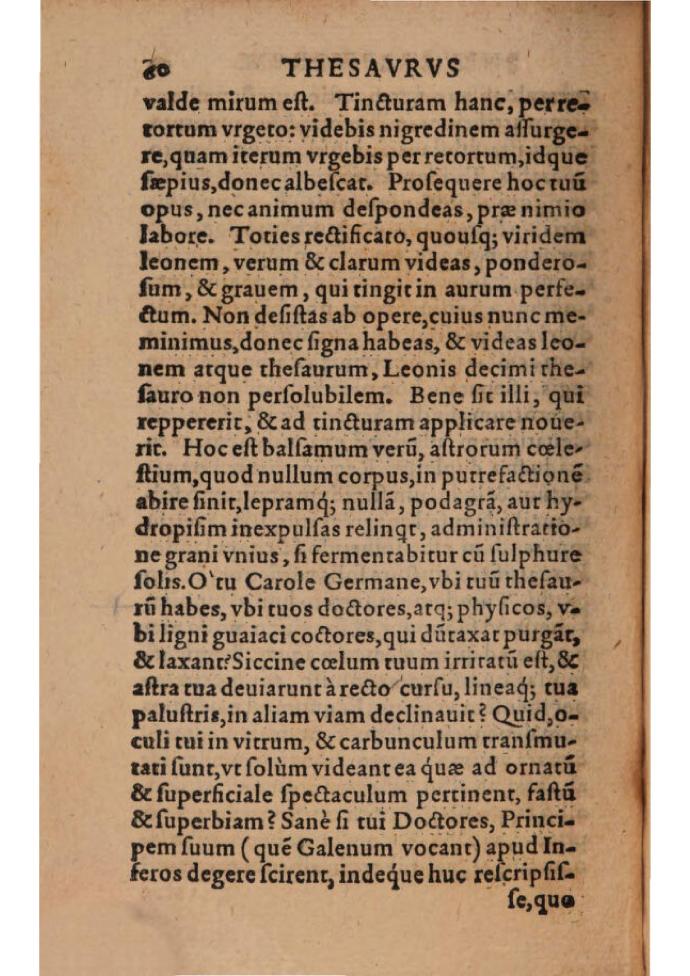 80 THESAVRVS
valde mirum eſt. Tincturam hanc, per re-
tortum vrgeto: videbis nigredinem aſſurge-
re, quam iterum vrgebis per retortum, idque
ſæpius, donec albeſcat. Proſequere hoc tuũ
opus, nec animum deſpondeas, præ nimio
labore. Toties rectificato, quouſq; viridem
leonem, verum & clarum videas, pondero-
ſum, & grauem, qui tingit in aurum perfe-
ctum. Non deſiſtas ab opere, cuius nunc me-
minimus, donec ſigna habeas, & videas leo-
nem atque theſaurum, Leonis decimi the-
ſauro non perſolubilem. Bene ſit illi, qui
reppererit, & ad tincturam applicare noue-
rit. Hoc eſt balſamum verũ, aſtrorum cœle-
ſtium, quod nullum corpus, in putrefactionẽ
abire ſinit, lepramq́; nullã, podagrã, aut hy-
dropiſim inexpulſas relinqt, adminiſtratio-
ne grani vnius, ſi fermentabitur cũ ſulphure
ſolis. O tu Carole Germane, vbi tuũ theſau-
rũ habes, vbi tuos doctores, atq; phyſicos, v-
bi ligni guaiaci coctores, qui dũtaxat purgãt,
& laxant? Siccine cœlum tuum irritatũ eſt, &
aſtra tua deuiarunt à recto curſu, lineaq́; tua
paluſtris, in aliam viam declinauit? Quid, o-
culi tui in vitrum, & carbunculum tranſmu-
tati ſunt, vt ſolùm videant ea q́uæ ad ornatũ
& ſuperficiale ſpectaculum pertinent, faſtũ
& ſuperbiam? Sanè ſi tui Doctores, Princi-
pem ſuum ( quẽ Galenum vocant) apud In-
feros degere ſcirent, indeq́ue huc reſcripſiſ-
ſe, quo